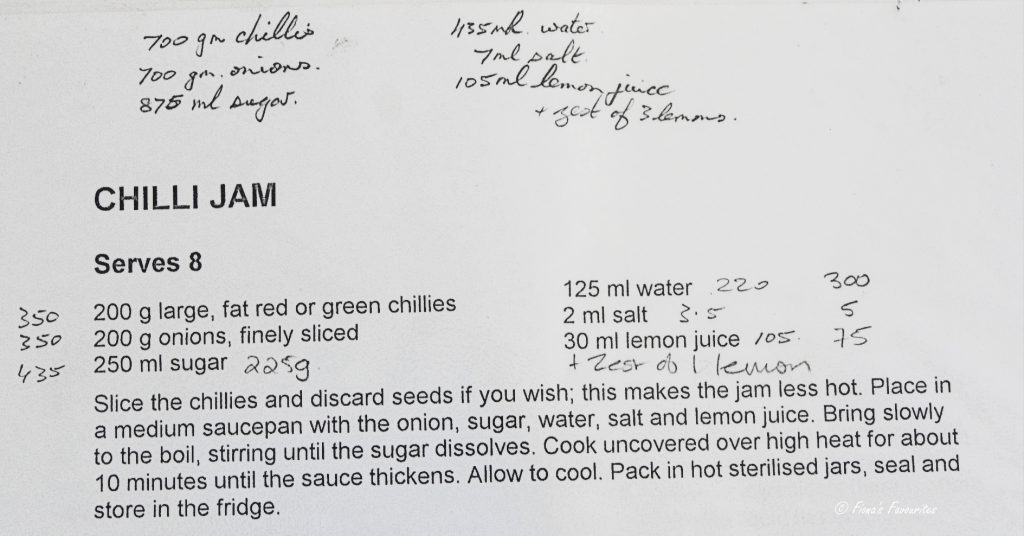 700 gm chillis
700 gm. onions.
875 ml sugar.
435ml. water.
7ml salt.
105ml lemon juice
+ zest of 3 lemons.
CHILLI JAM
Serves 8
350 200 g large, fat red or green chillies
350 200 g onions, finely sliced
435 250 ml sugar 225g
125 ml water 220 300
2 ml salt 3.5 5
30 ml lemon juice 105. 75
+ Zest of 1 lemon
Slice the chillies and discard seeds if you wish; this makes the jam less hot. Place in
a medium saucepan with the onion, sugar, water, salt and lemon juice. Bring slowly
to the boil, stirring until the sugar dissolves. Cook uncovered over high heat for about
10 minutes until the sauce thickens. Allow to cool. Pack in hot sterilised jars, seal and
store in the fridge.
© Fiona's Favourites